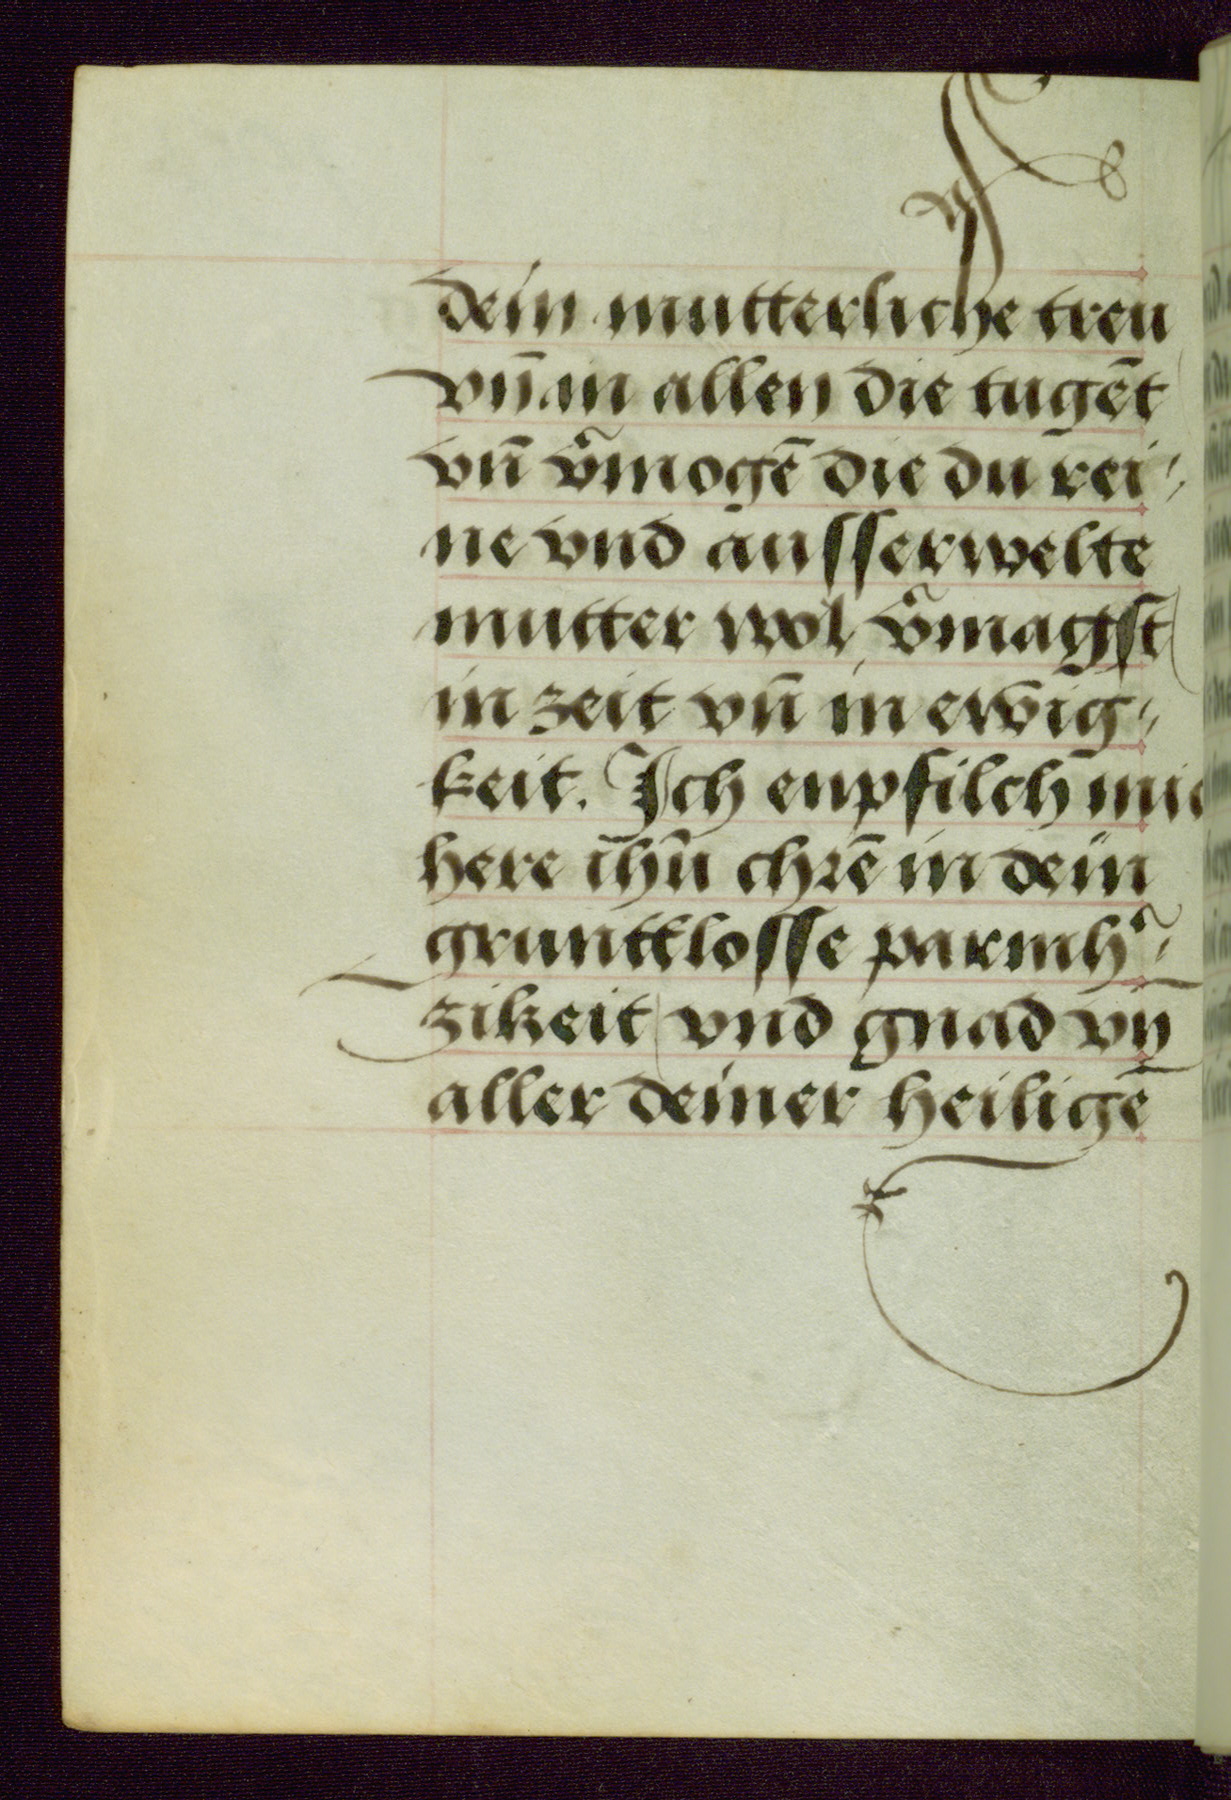 dein mutterliche treu
vn̄ in allen die tugēt
vn̄ v᷑mogē die du rei⸗
ne vnd ausserwelte
mutter wol v᷑magst
in zeit vn̄ in ewig⸗
keit. Ich enpfilch mic
here ih̄u chrē in dein
gruntlosse parmh᷑⸗
zikeit vnd gnad vn̄
aller deiner heiligē